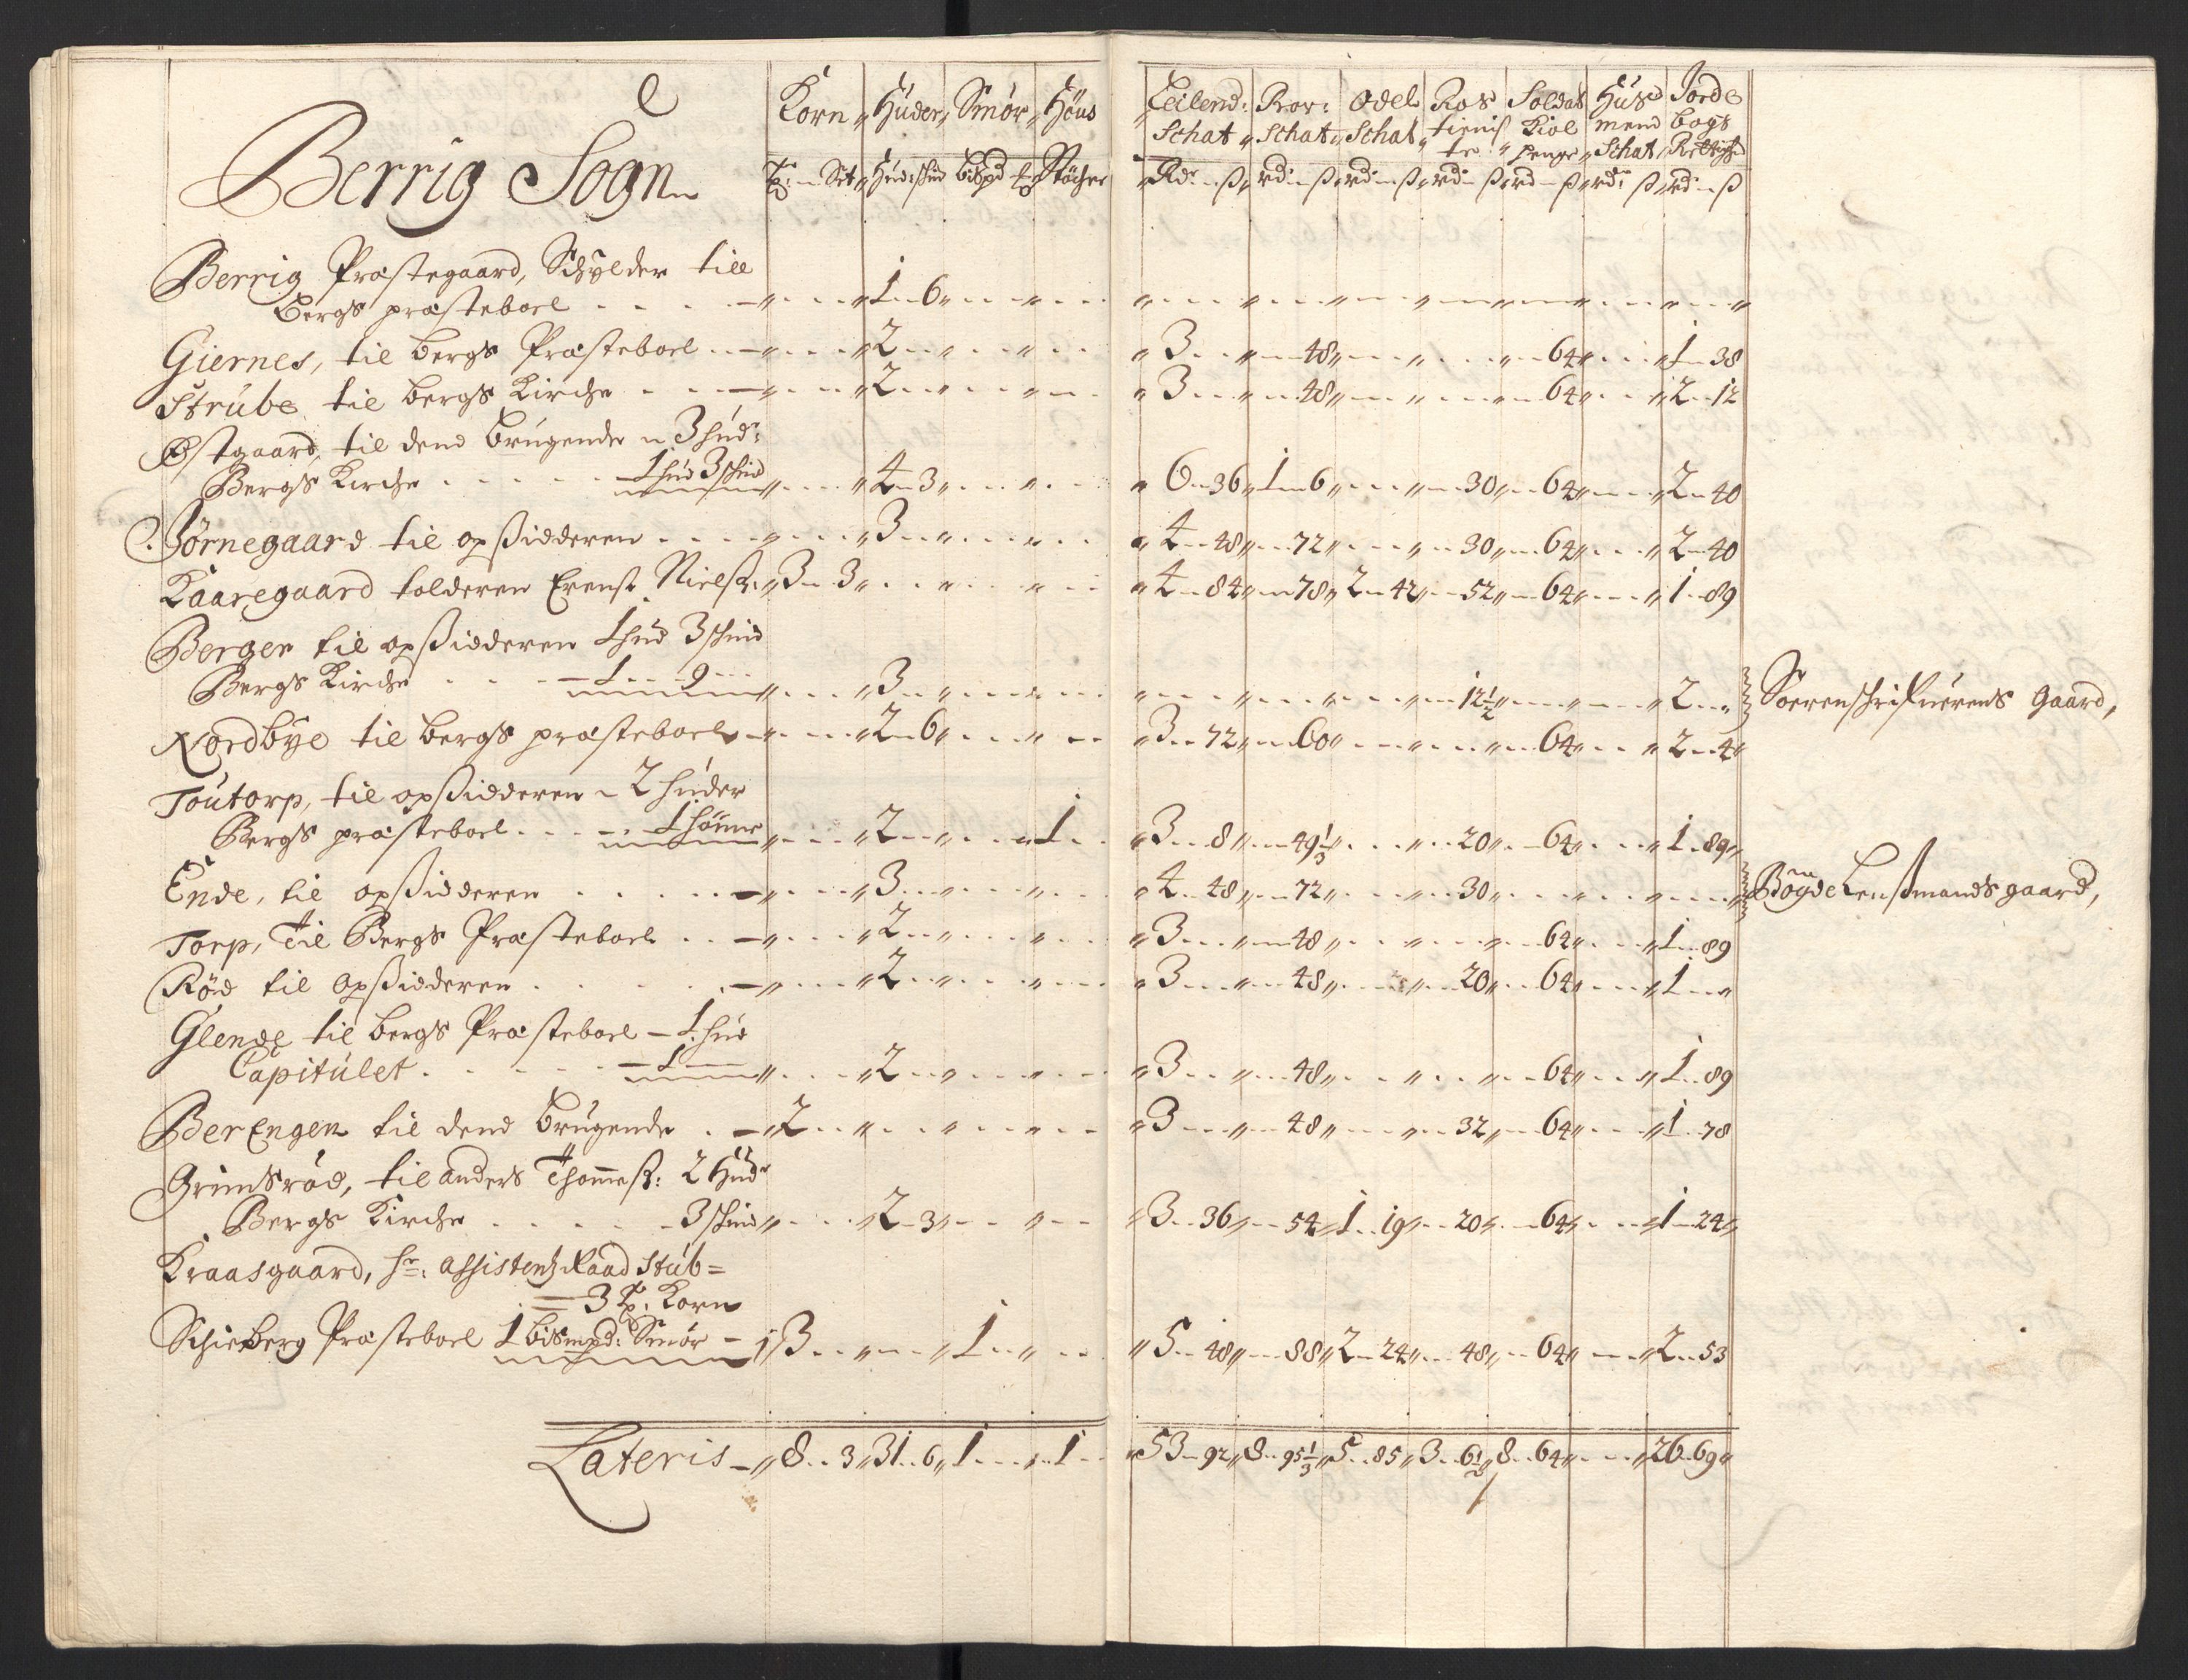 Korn Huder Smör Höns
Leilend: Prov: Odel Ros Soldat Husd Jorde
Schat Schat Schat tienis Kiol mend bogs
te penge Schat Rettighd
Berrig Sogn
Tr: Set Hud: schind Støcher
Rdr ß rd ß rd ß rd ß rd ß rd ß rd ß
Berrig Præstegaard, Schylder till
Bergs præsteboel 1 6
Giernes, til bergs Præsteboel 2 3 48 64 1 38
Strube til bergs Kirche 2 3 48 64 2 12
Østgaard, til dend brugende 3 hud:
Bergs Kirche 1 hud 3 schind 4 3 6 36 1 6 30 64 2 40
Jørnegaard til opsidderen 3 4 48 72 30 64 2 40
Kaaregaard tolderen Erenst Nielß: 3 3 4 84 78 2 42 52 64 1 89
Bergen til opsidderen 1 hud 3 schind
Bergs Kirche 1 9 3 12½ 2 Sorenschrifuerens gaard,
Nordbye til bergs præsteboel 2 6 3 72 60 64 2 4
Toutorp, til opsidderen 2 huder
Bergs præsteboel 1 hönne 2 1 3 8 49⅓ 20 64 1 89
Ende, til opsidderen 3 4 48 72 30 Böyde Lensmands gaard,
Torp, Til Bergs Præsteboel 2 3 48 64 1 89
Röd til opsidderen 2 3 48 20 64 1
Glende til bergs Præsteboel 1 hud
Capitulet 1 2 3 48 64 1 89
Ber Engen til dend brugende 2 3 48 32 64 1 78
Grimsröd, til anders Thommeß: 2 Hud
Bergs Kirche 3 schind 2 3 3 36 54 1 19 20 64 1 24
Kraasgaard, hr: assistentz Raad Stub=
3 Korn
Schieberg Præsteboel 1 bismpd: Smör 3 1 5 48 88 2 24 48 64 2 53
Lateris 8 3 31 6 1 1 53 92 8 95⅓ 5 85 3 6½ 8 64 26 69